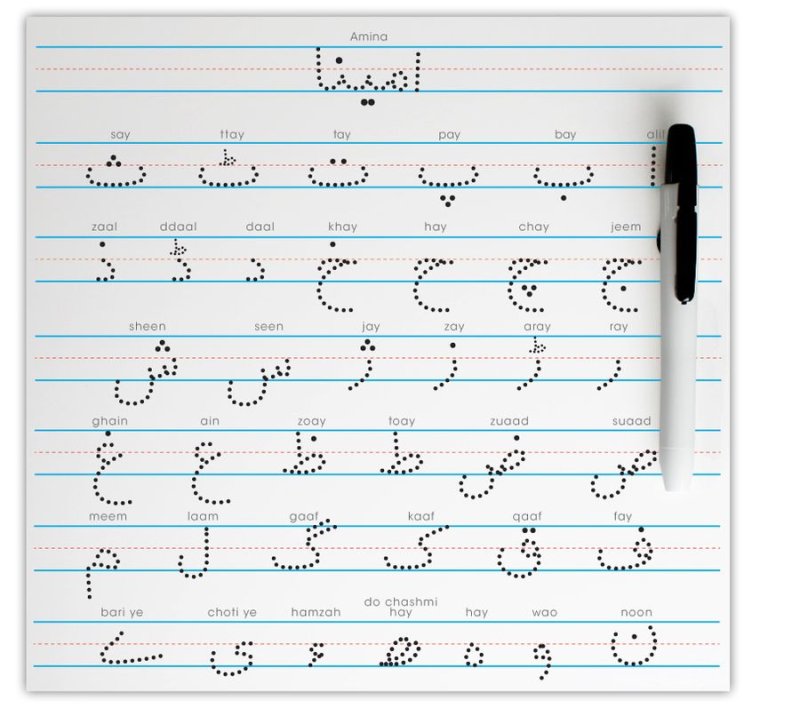 Amina
امینا
say ttay tay pay bay alif
ا ب پ ت ٹ ث
zaal ddaal daal khay hay chay jeem
ج چ ح خ د ڈ ذ
sheen seen jay zay aray ray
ر ڑ ز ژ س ش
ghain ain zoay toay zuaad suaad
ص ض ط ظ ع غ
meem laam gaaf kaaf qaaf fay
ف ق ک گ ل م
do chashmi
bari ye choti ye hamzah hay hay wao noon
ن و ہ ھ ء ی ے